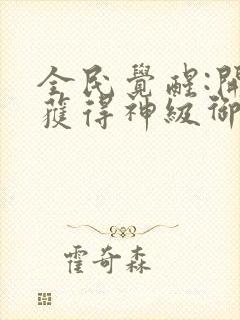 全民覺醒:開
獲得神級御
霍奇森